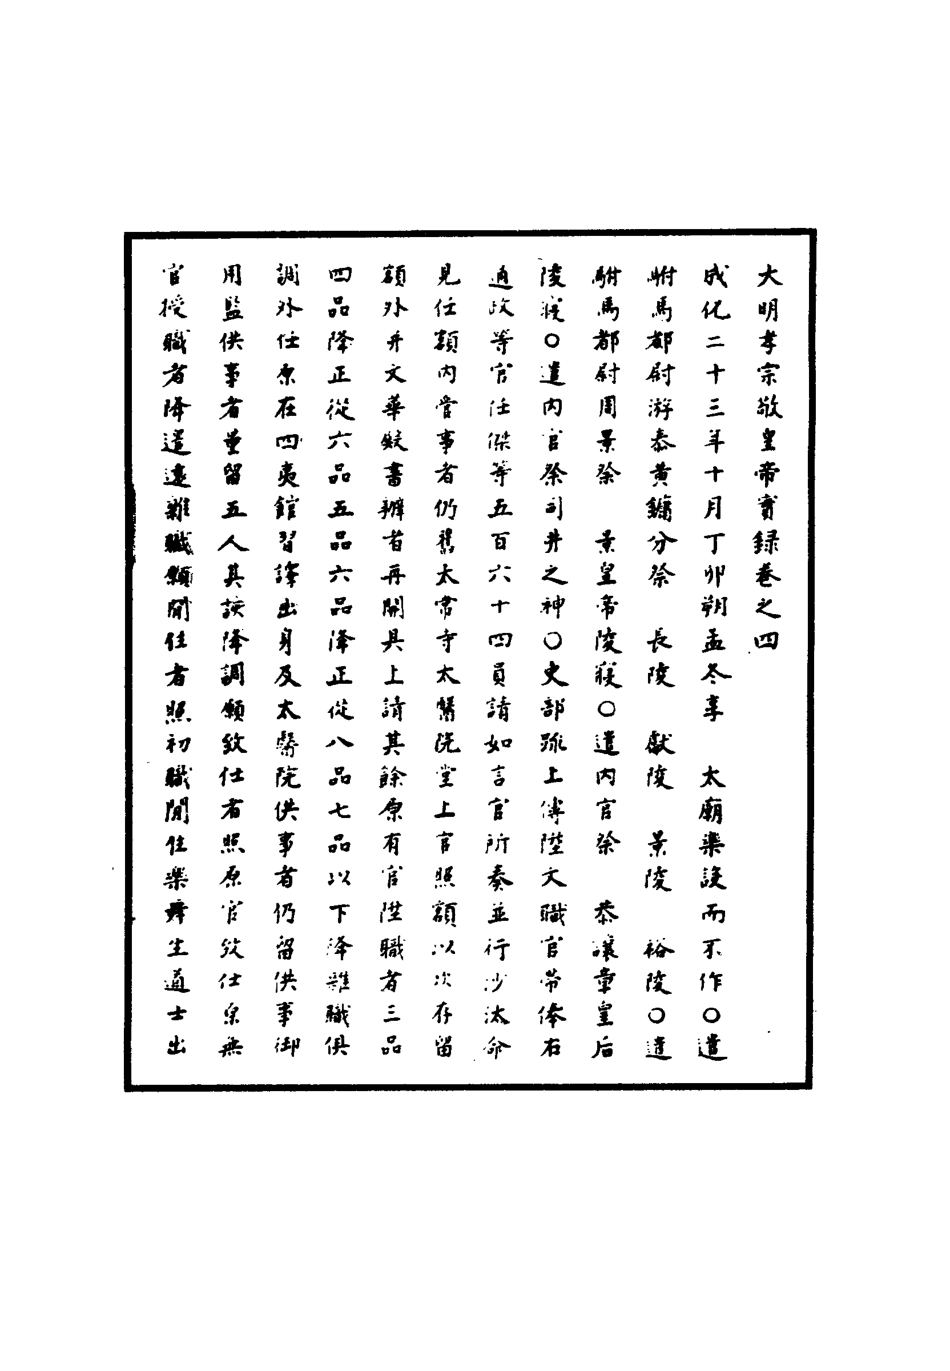 大明孝宗敬皇帝實録卷之四
成化二十三年十月丁卯朔孟冬享　太廟樂設而不作○遣
駙馬都尉游泰黄鏞分祭　長陵　獻陵　景陵　裕陵○遣
駙馬都尉周景祭　景皇帝陵寢○遣内官祭　恭讓章皇后
陵寢○遣内官祭司井之神○吏部疏上傳陞文職官帶俸右
通政等官任傑等五百六十四員請如言官所奏並行沙汰命
見任額内管事者仍舊太常寺太醫院堂上官照額以次存留
額外并文華殿書辦者再開具上請其餘原有官陞職者三品
四品降正從六品五品六品降正從八品七品以下降雜職俱
調外任原在四夷館習譯出身及太醫院供事者仍留供事御
用監供事者量留五人其該降調願致仕者照原官致仕原無
官授職者降遣遠雜職願閒住者照初職閒住樂舞生道士出